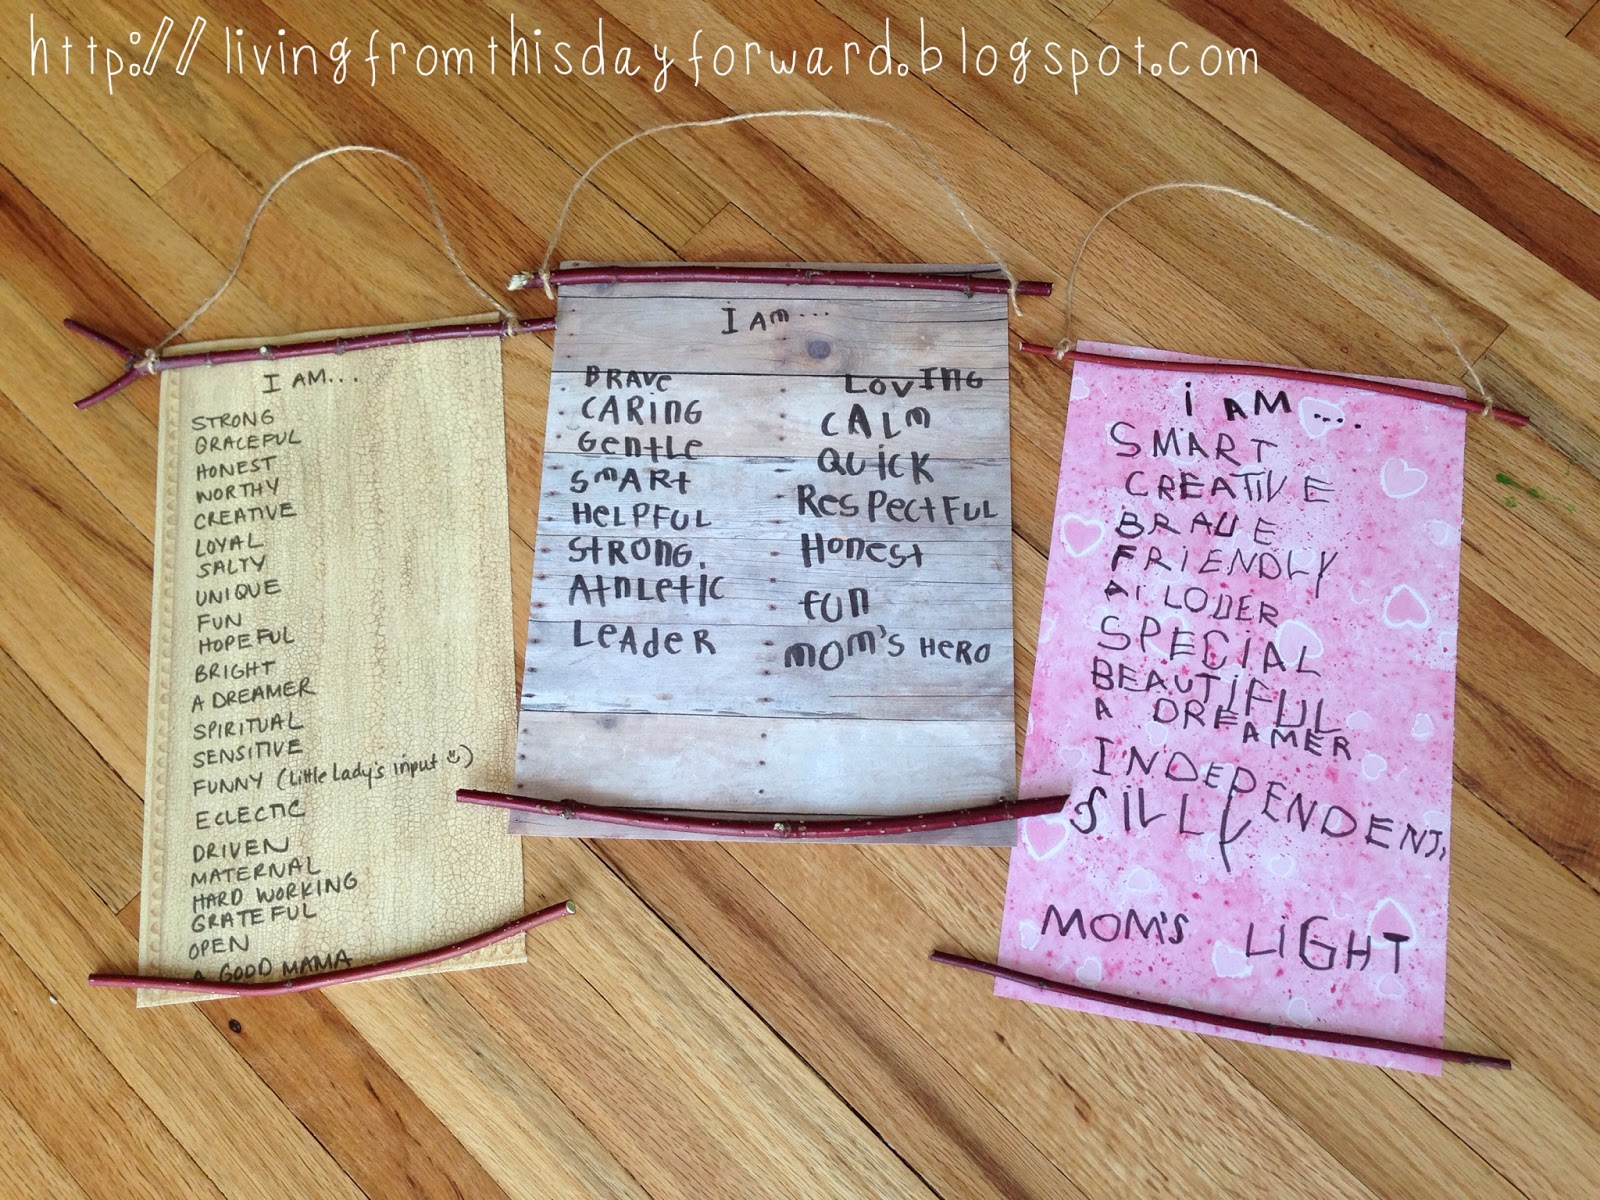 http://livingfromthisdayforward.blogspot.com
I AM...
STRONG
GRACEFUL
HONEST
WORTHY
CREATIVE
LOYAL
SALTY
UNIQUE
FUN
HOPEFUL
BRIGHT
A DREAMER
SPIRITUAL
SENSITIVE
FUNNY (Little Lady's input ☺)
ECLECTIC
DRIVEN
MATERNAL
HARD WORKING
GRATEFUL
OPEN
A GOOD MAMA
I Am...
BRAve
CARinG
Gentle
SmARt
HeLPFUL
StRonG.
AtHLetic
LeAdeR
LovING
CALm
QUicK
ResPectFUL
Honest
fUn
mom's HeRo
i AM....
SMART
CREATIVE
BRAVE
FRIENDLY
SPECIAL
BEAUTIFUL
A DREAMER
INDEPENDENT,
SILLY
MOM'S LiGHT